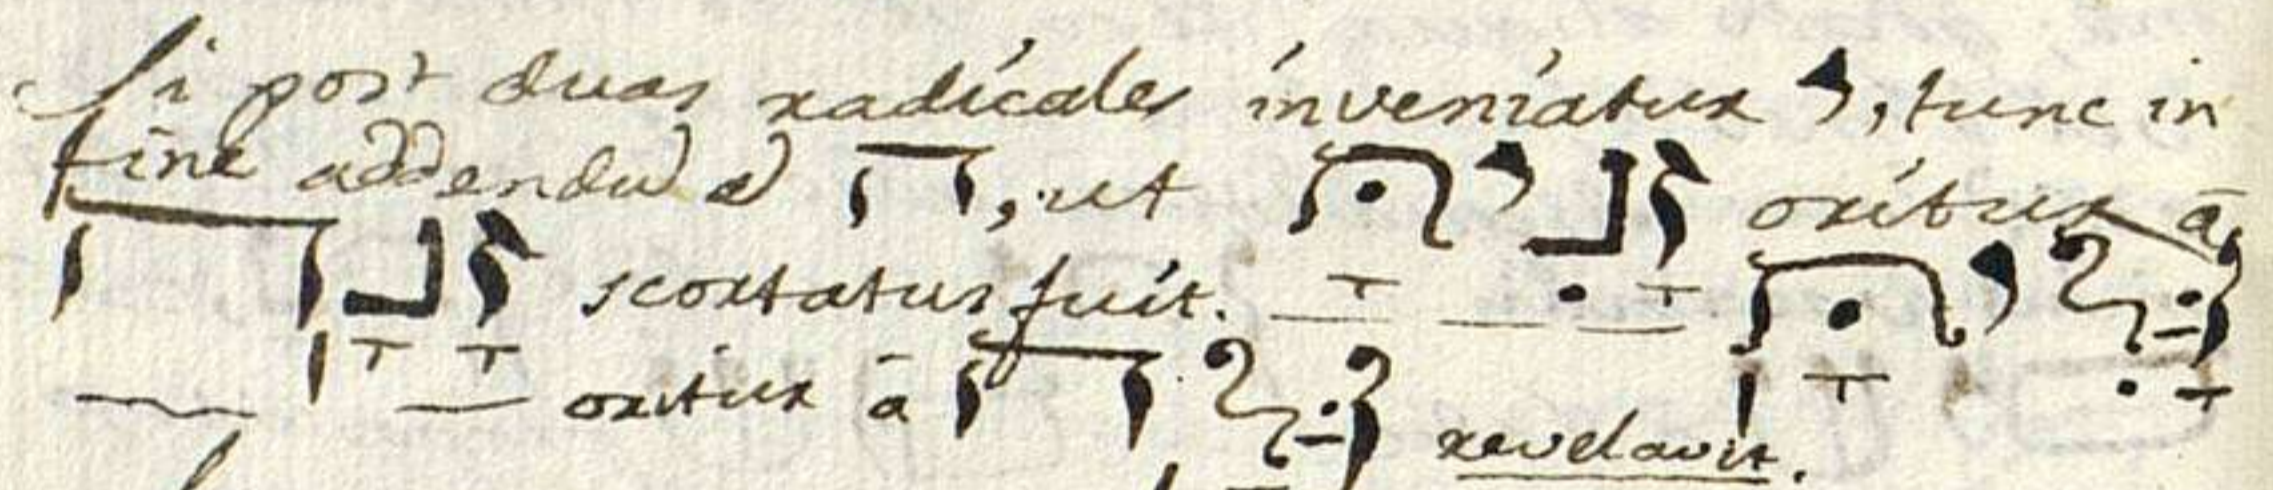 Si post duas radicales inveniatur י, tunc in
fine addendū ē ה, ut זָנִיתָּ oritur ā
זָנָה scortatus fuit. — — — גָּלִיתָּ
— — oritur ā גָּלָה revelavit.